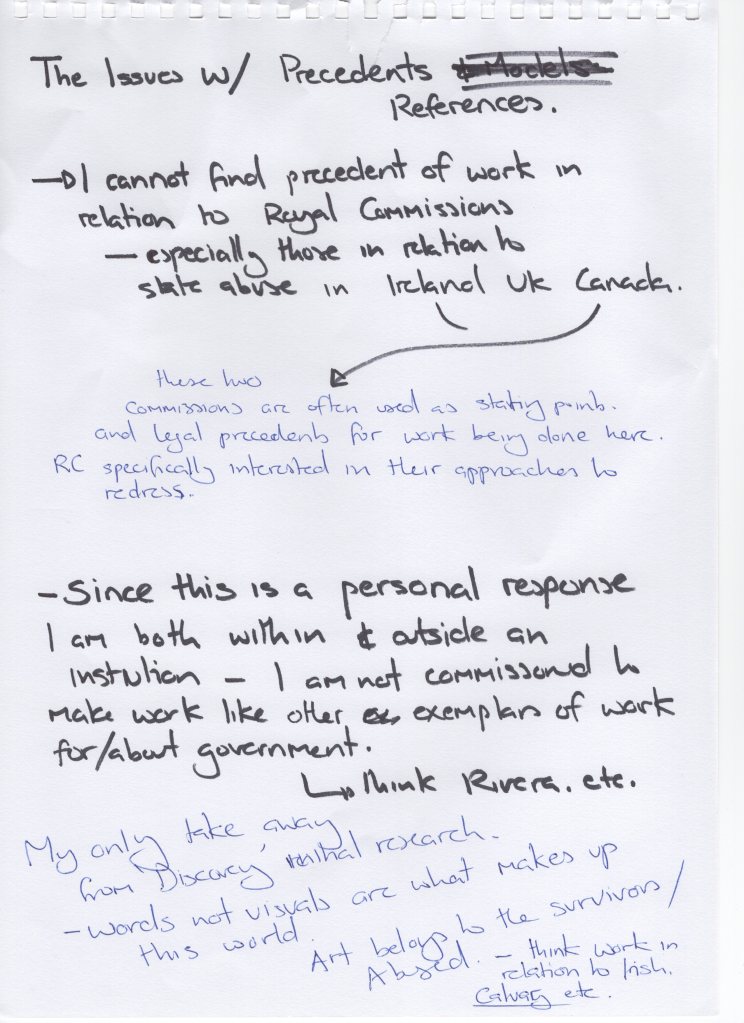 The Issues w/ Precedents & Models
References.
I cannot find precedent of work in
relation to Royal Commissions
— especially those in relation to
state abuse in Ireland UK Canada.
these two
commissions are often used as stating points.
and legal precedents for work being done here.
RC specifically interested in their approaches to
redress.
- Since this is a personal response
I am both within & outside an
instution - I am not commissoned to
make work like other exemplars of work
for/about government.
Think Rivera. etc.
My only take away
from Discovey, initial research.
- words not visuals are what makes up
this world.
Art belogs to the survivors/
Abused. - think work in
relation to Irish.
Calvary etc.